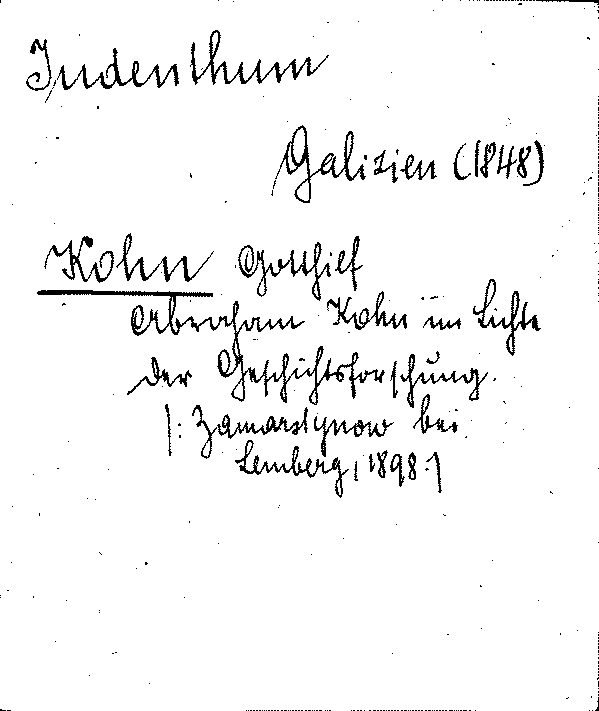 Judenthum
Galizien (1848)
Kohn Gotthilf
Abraham Kohn im Lichte
der Geschichtsforschung.
|: Zamarstynow bei
Lemberg, 1898 :|